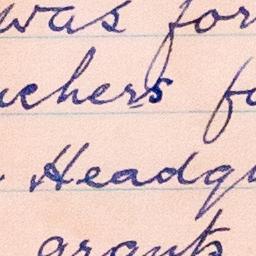 was for
chers fo
Headqu
grants